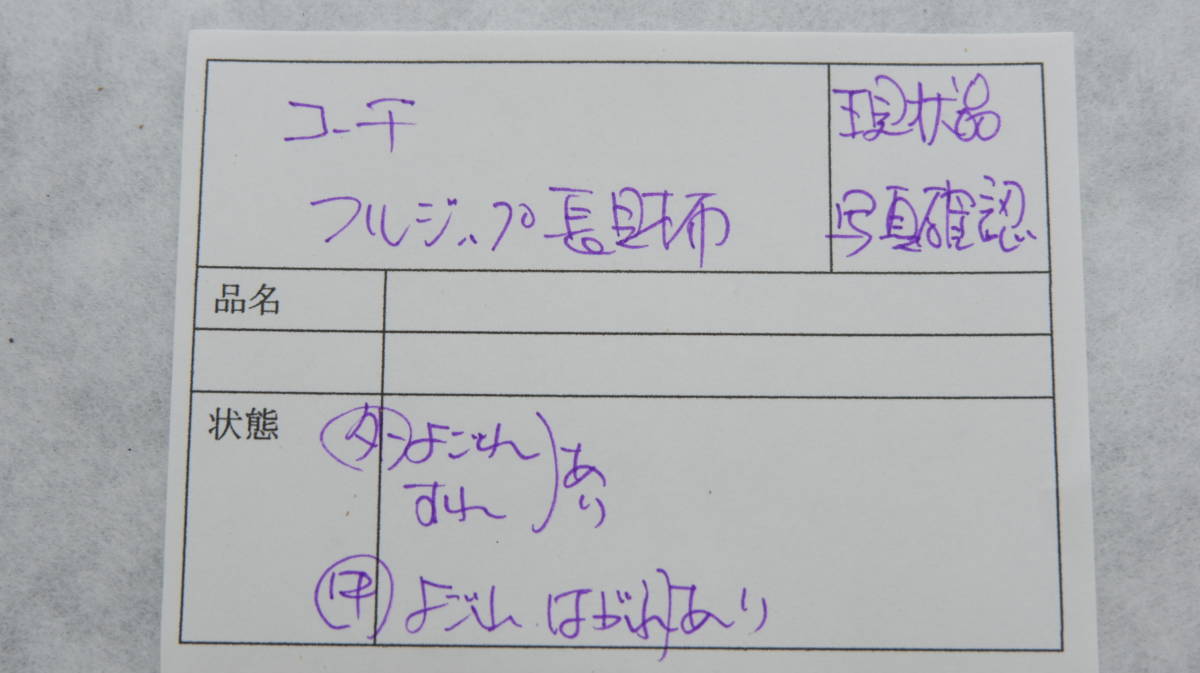 コーチ
フルジップ長財布
現状品
写真確認
品名
状態
外 よごれ
すれ
あり
中 よごれ はがれ あり